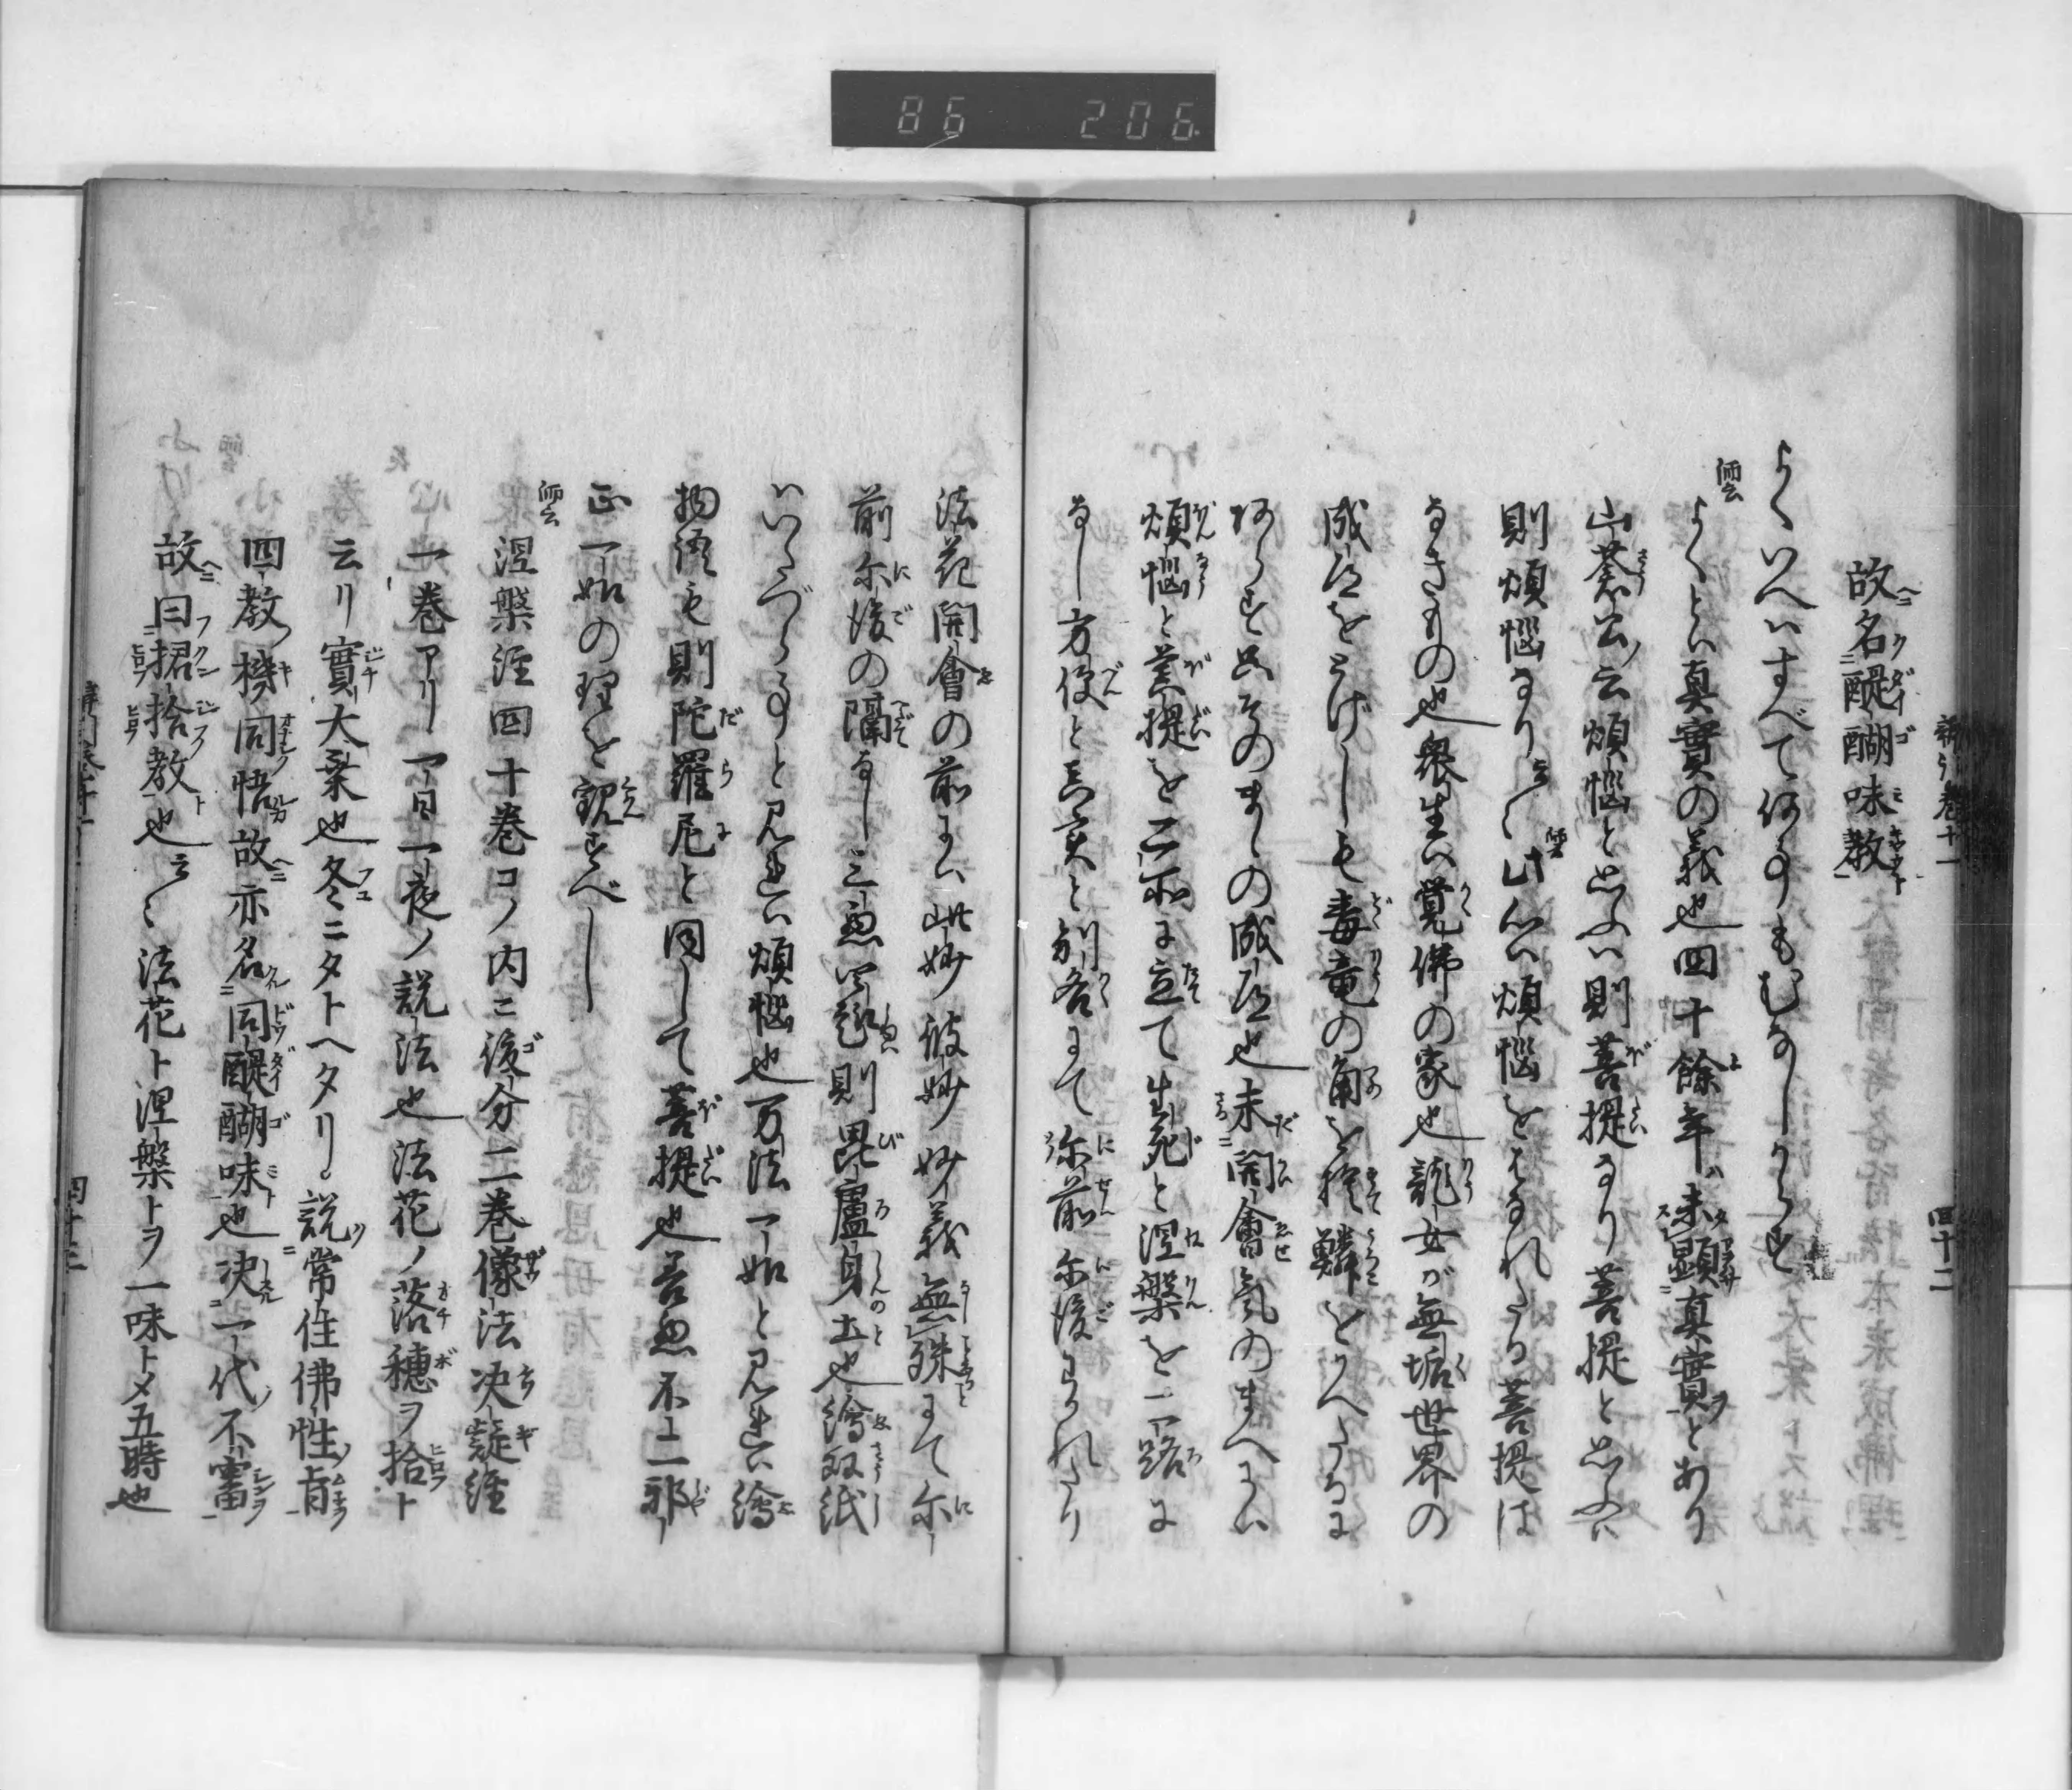 86 206
故名醍醐味教
よくいへいすべて何事もむなしからず
師云 よくとハ真實の義也四十餘年ハ未顕真實とあり
山菴云云煩悩と思ふハ則菩提なり菩提と思ふハ
則煩悩なり云〱 此心ハ煩悩をはなれたる菩提は
なきもの也衆生ハ覚佛の家也龍女が無垢世界の
成道をとげしも毒竜の角を捨鱗をかへたるに
あらず只そのまゝの成道也未開會氣のまへにハ
煩悩と菩提を二所に立て生死と涅槃を二路に
なし方便と真実と別各にて弥前尓後わかれたり
法花開會の前にハ此妙彼妙妙義無殊にて尓
前尓後の隔なし三悪四趣則毘盧身土也繪双紙
いたづら事と見れハ煩悩也万法一如と見れハ繪
物語も則陀羅尼と同して菩提也善悪不二邪
正一如の理を観ずべし
師云 涅槃経四十巻コノ内ニ後分二巻像法決疑経
一巻アリ一日一夜ノ説法也法花ノ落穂ヲ拾ト
云リ實大乗也冬ニタトヘタリ。説常住佛性旨
四教機同悟故亦名同醍醐味也決一代不審
故曰捃拾教也云〱 法花ト涅槃トヲ一味トメ五時也
四十二